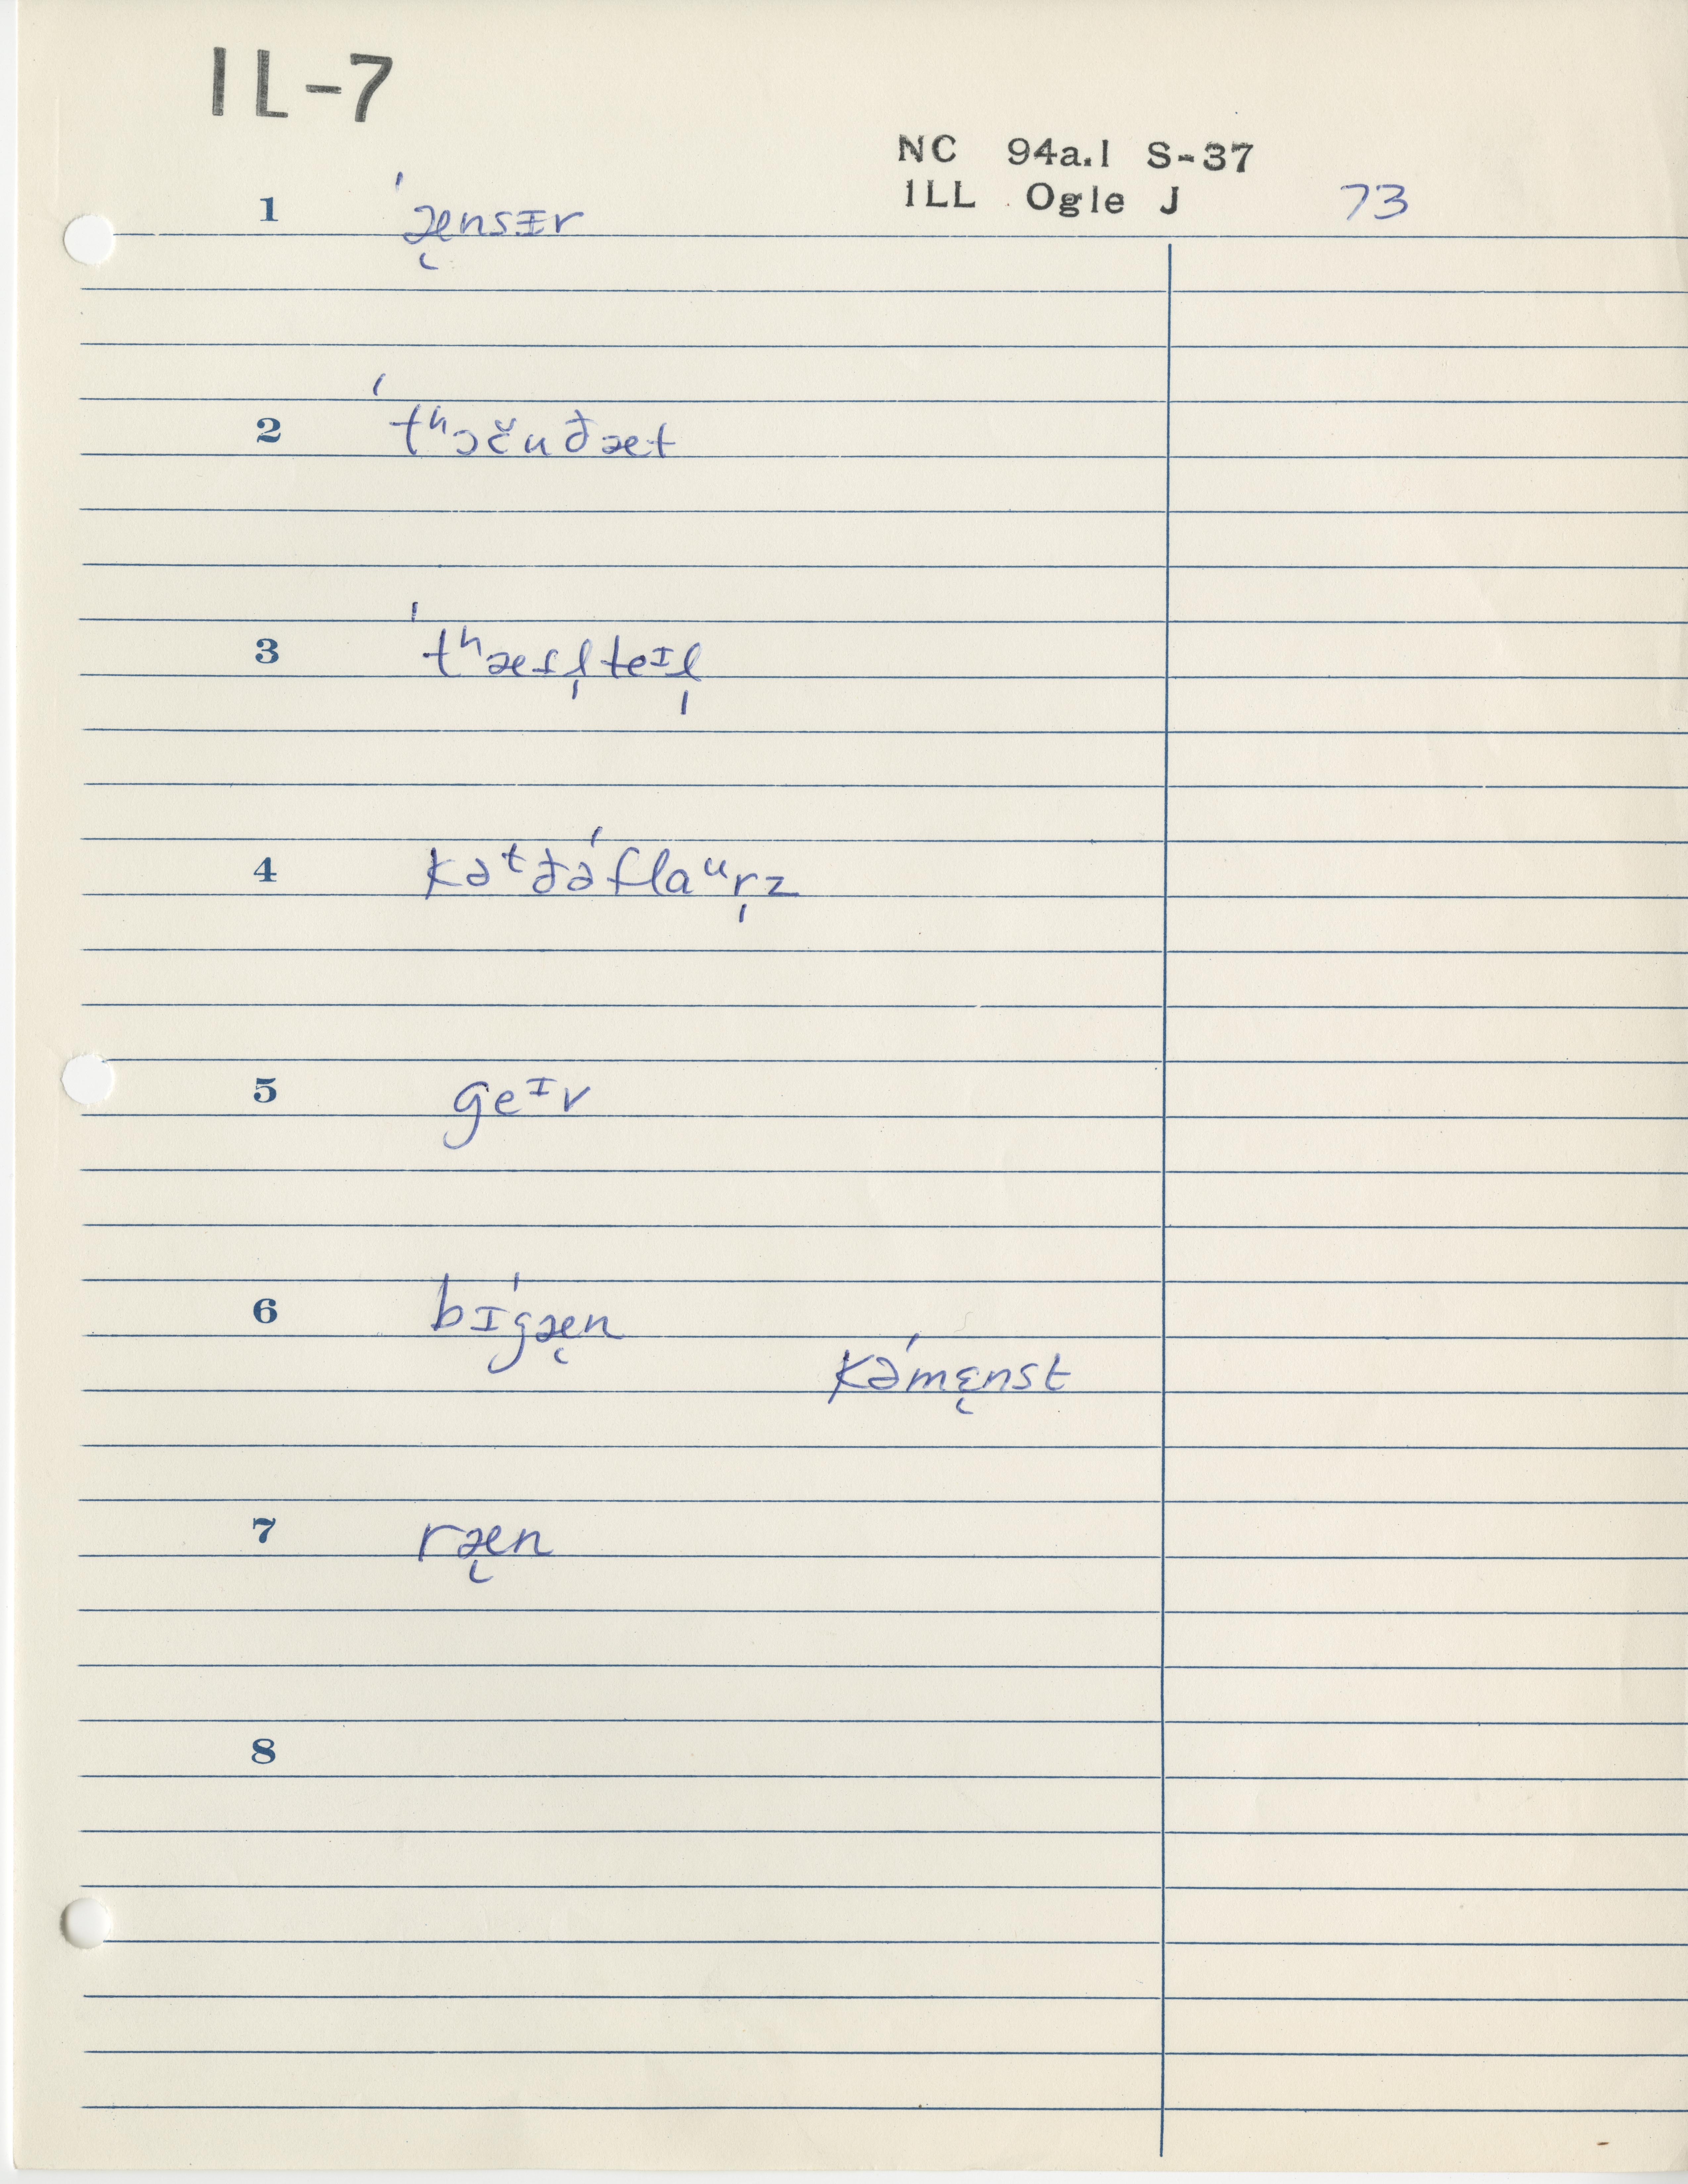 IL-7
NC 94a.1 S-37
ILL Ogle J 73
1 ˈæ̨nsɪr
2 ˈtʰɔčuðæt
3 ˈtʰæsl̩teɪl̩
4 kəᵗðəˈflaᵘr̩z
5 geᶦv
6 bɪˈgæ̨n
kəˈmɛ̨nst
7 ræ̨n
8